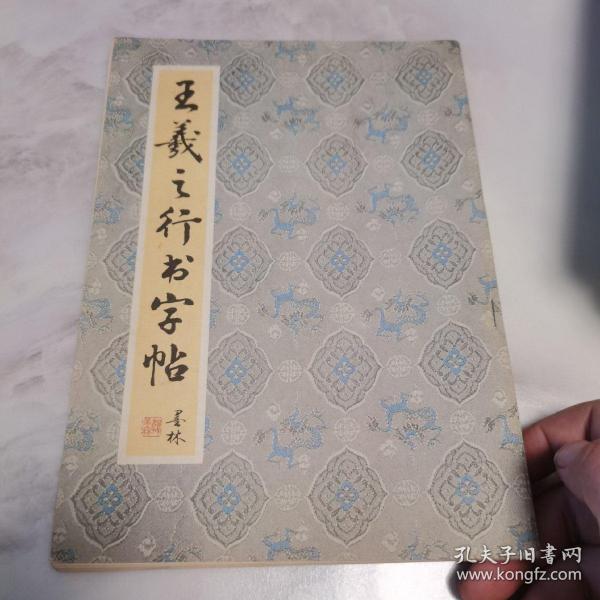 王羲之行书字帖
墨林
孔夫子旧书网
www.kongfz.com